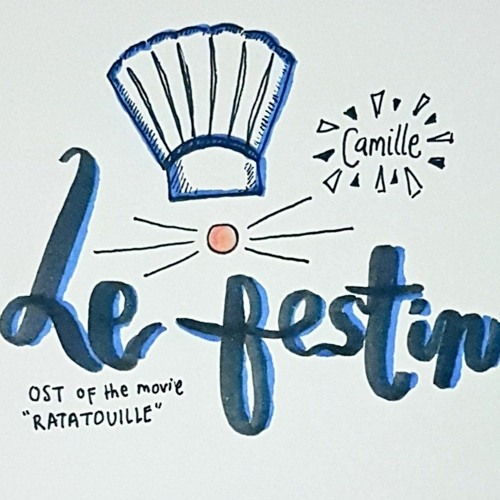 Camille
Le festin
OST OF the movie
"RATATOUILLE"